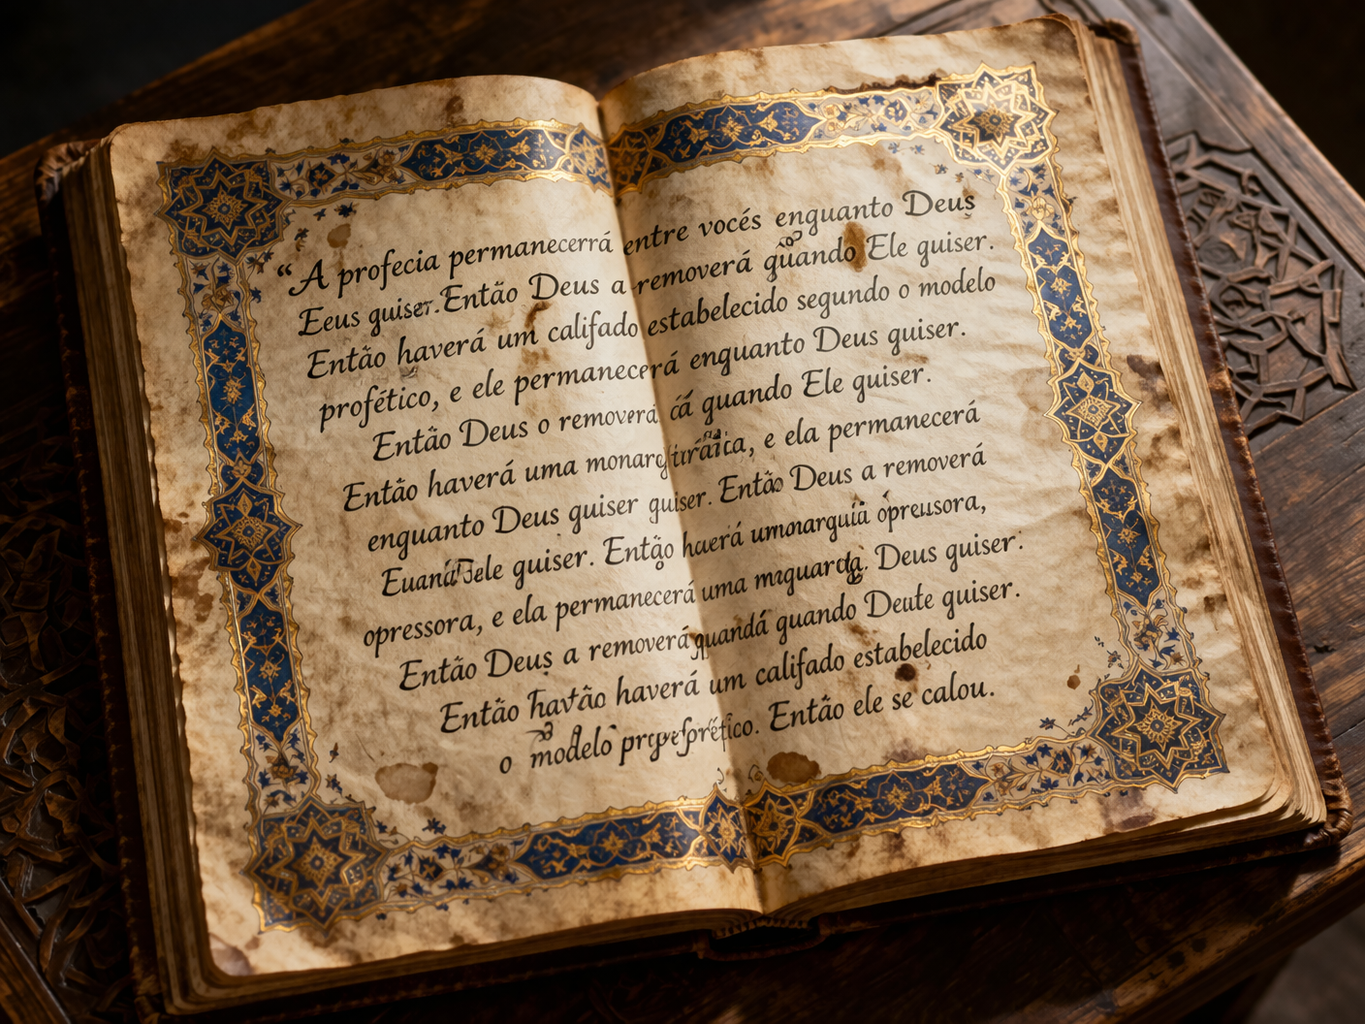 “A profecia permanecerrá entre vocés enguanto Deus
Eeus guiser. Então Deus a removerá guando Ele guiser.
Então haverá um califado estabelecido segundo o modelo
profético, e ele permanecerá enguanto Deus guiser.
Então Deus o removerá cá guando Ele guiser.
Então haverá uma e ela permanecerá
enguanto Deus guiser guiser. Então Deus a removerá
guiser. Então haerá opressora,
opressora, e ela permanecerá uma Deus guiser.
Então Deus a removerá guandá guando guiser.
Então haverá um califado estabelecido
o modelo Então ele se calou.